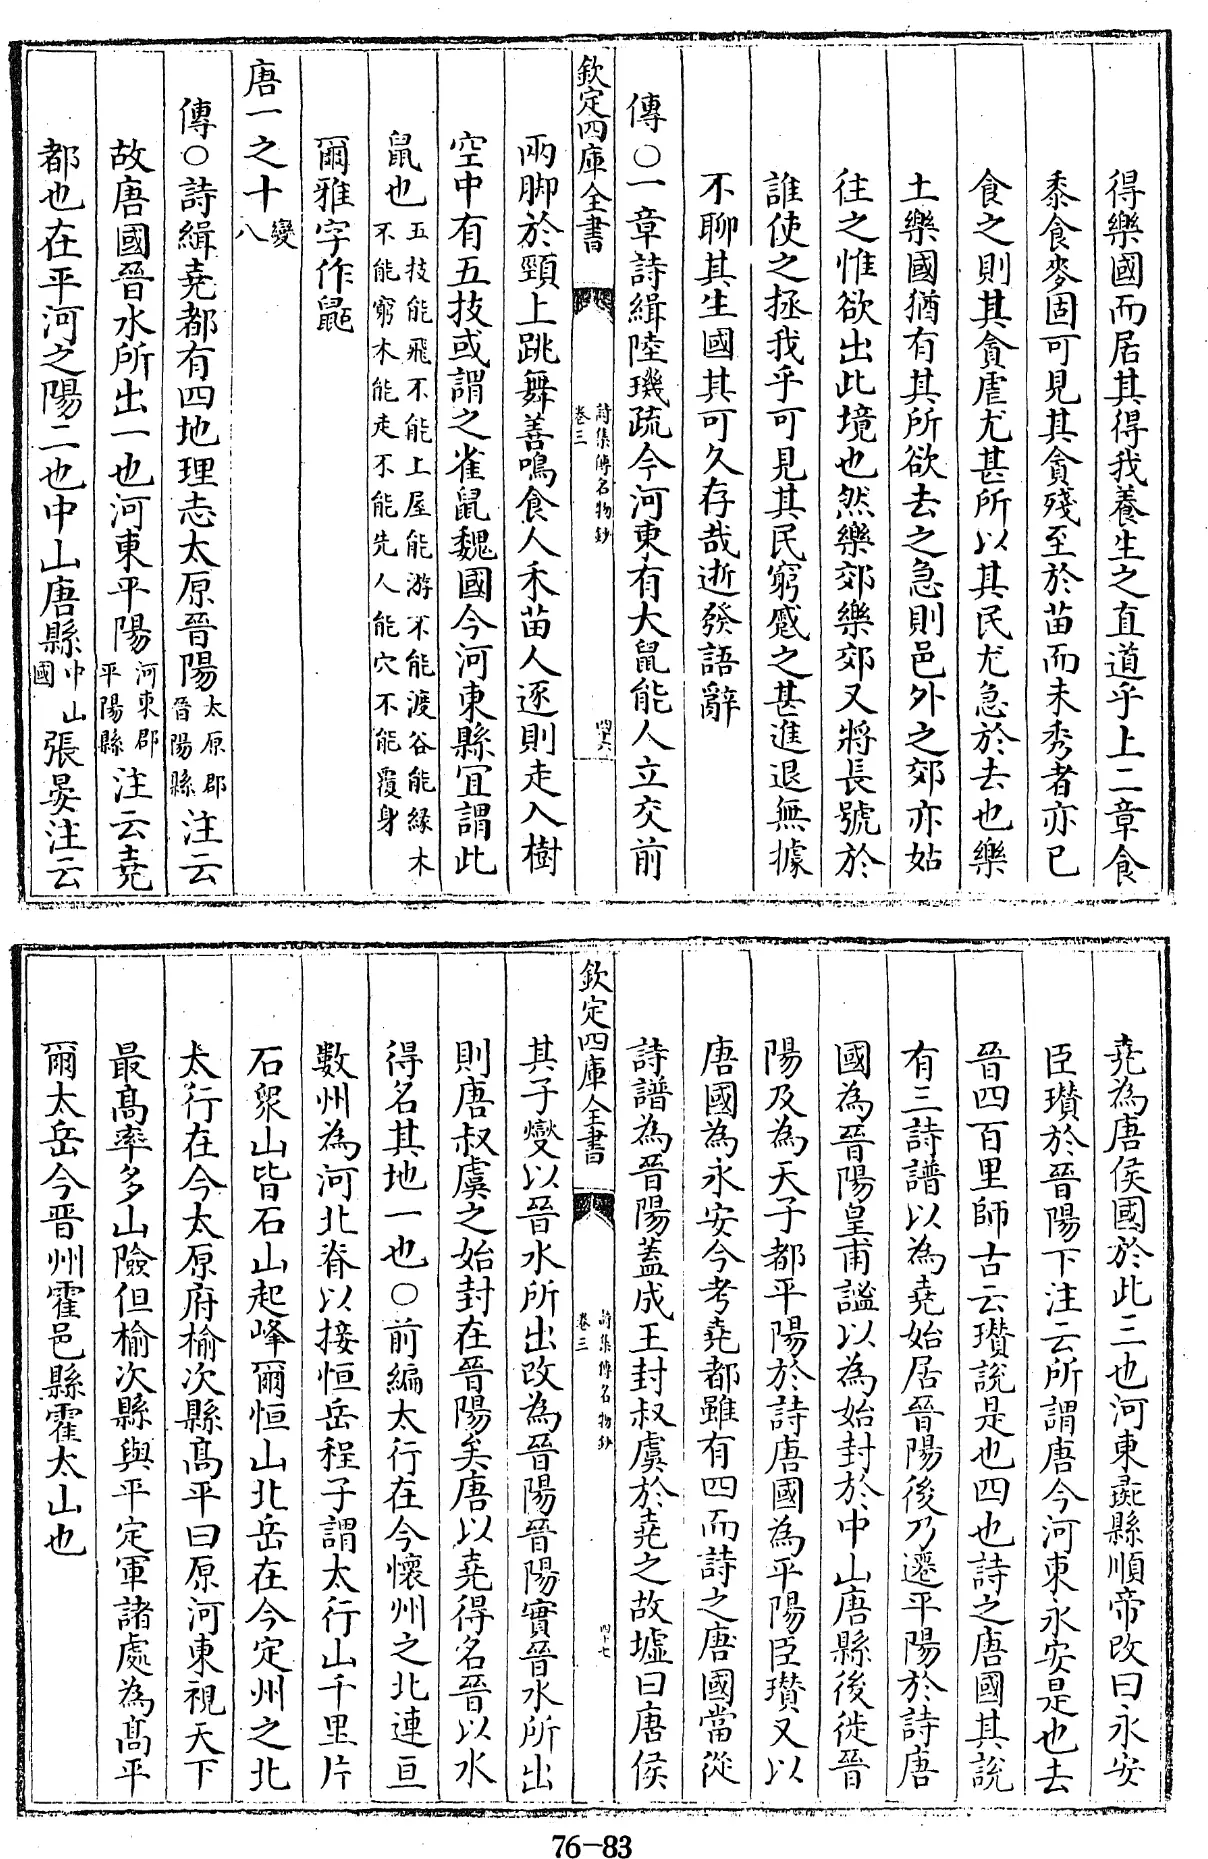 得樂國而居其得我養生之直道乎上二章食
黍食麥固可見其貪殘至於苗而未秀者亦已
食之則其貪虐尤甚所以其民尤急於去也樂
土樂國猶有其所欲去之急則邑外之郊亦姑
往之惟欲出此境也然樂郊樂郊又將長號於
誰使之拯我乎可見其民窮蹙之甚進退無據
不聊其生國其可久存哉逝發語辭
傳○一章詩緝陸璣疏今河東有大鼠能人立交前
欽定四庫全書
詩集傳名物鈔
卷三
四六
兩脚於頸上跳舞善鳴食人禾苗人逐則走入樹
空中有五技或謂之雀鼠魏國今河東縣宜謂此
鼠也五技能飛不能上屋能游不能渡谷能緣木
不能窮木能走不能先人能穴不能覆身
爾雅字作鼫
唐一之十變
八
傳○詩緝堯都有四地理志太原晉陽太原郡晉陽縣注云
故唐國晉水所出一也河東平陽河東郡平陽縣注云堯
都也在平河之陽二也中山唐縣中山國張晏注云
堯為唐侯國於此三也河東彘縣順帝改曰永安
臣瓚於晉陽下注云所謂唐今河東永安是也去
晉四百里師古云瓚說是也四也詩之唐國其說
有三詩譜以為堯始居晉陽後乃遷平陽於詩唐
國為晉陽皇甫謐以為始封於中山唐縣後徙晉
陽及為天子都平陽於詩唐國為平陽臣瓚又以
唐國為永安今考堯都雖有四而詩之唐國當從
詩譜為晉陽蓋成王封叔虞於堯之故墟曰唐侯
欽定四庫全書
詩集傳名物鈔
卷三
四十七
其子燮以晉水所出改為晉陽晉陽實晉水所出
則唐叔虞之始封在晉陽矣唐以堯得名晉以水
得名其地一也○前編太行在今懷州之北連亘
數州為河北脊以接恒岳程子謂太行山千里片
石衆山皆石山起峰爾恒山北岳在今定州之北
太行在今太原府榆次縣高平曰原河東視天下
最高率多山險但榆次縣與平定軍諸處為高平
爾太岳今晉州霍邑縣霍太山也
76-83